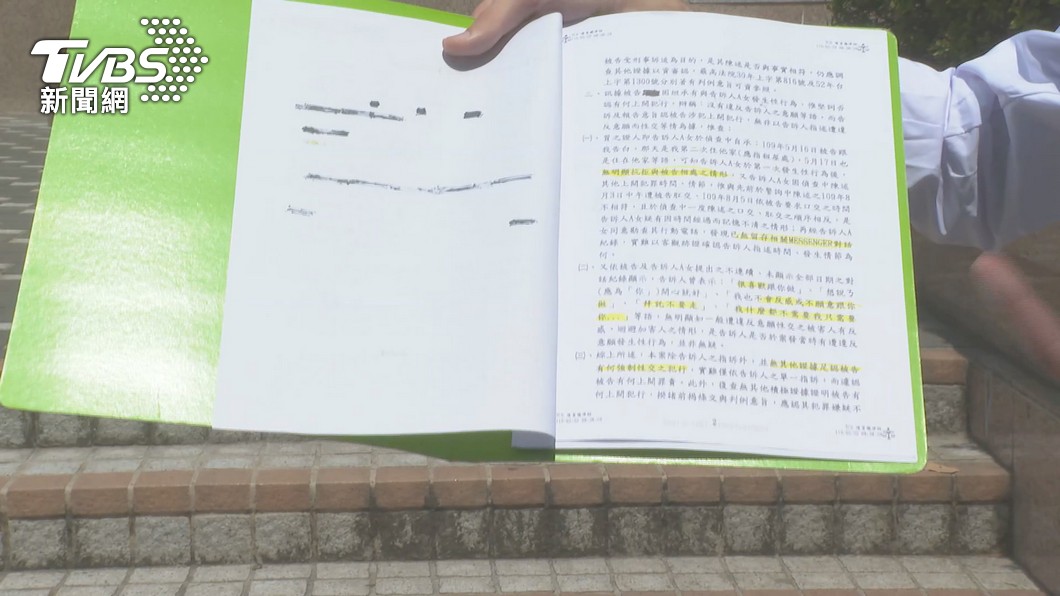 TVBS
新聞網
被告受刑事訴追為目的，是其陳述是否與事實相符，仍應調
查其他證據以資審認，最高法院30年上字第816號及52年台
上字第1300號分別著有判例意旨可資參照。
二、訊據被告 固坦承有與告訴人A女發生性行為，惟堅詞否
認有何上開犯行，辯稱：沒有違反告訴人之意願等語。而告
訴及報告意旨認被告涉犯上開犯行，無非以告訴人指述遭違
反意願而性交等情為據。惟查：
(一)、質之證人即告訴人A女於偵查中自承：109年5月16日被告跟
我告白，那天是我第二次住他家(應指租屋處)，5月17日也
是住在他家等語，可知告訴人A女於第一次發生性行為後，
無明顯抗拒與被告相處之情形。又告訴人A女固偵查中陳述
其他上開犯罪時間、情節，惟與先前於警詢中陳述之109年8
月3日中午遭被告肛交、109年8月5日依被告要求口交之時間
不相符，且於偵查中一度陳述之口交、肛交之順序相反，是
告訴人A女疑有因時間經過而記憶不清之情形；再經告訴人A
女同意勘查其行動電話，發現已無留存相關MESSENGER對話
紀錄，實難以客觀跡證確認告訴人指述時間、發生情節為
何。
(二)、又依被告及告訴人A女提出之不連續、未顯示全部日期之對
話紀錄顯示，告訴人曾表示：「很喜歡跟你 」、「想說ㄋ
(應為「你」)開心就好」、「我也不會反感或不願意跟你
啪」、「 不要走」、「我什麼都不需要我只需要
你...」等語，無明顯如一般遭違反意願性交之被害人有反
感、迴避加害人之情形，是告訴人是否於案發當時有遭違反
意願發生性行為，並非無疑。
(三)、綜上所述，本案除告訴人之指訴外，並無其他證據足認被告
有何強制性交之犯行，實難僅依告訴人之單一指訴，而遽認
被告有何上開罪責。此外，復查無其他積極證據證明被告有
何上開犯行，揆諸前揭條文與判例意旨，應認其犯罪嫌疑不
3